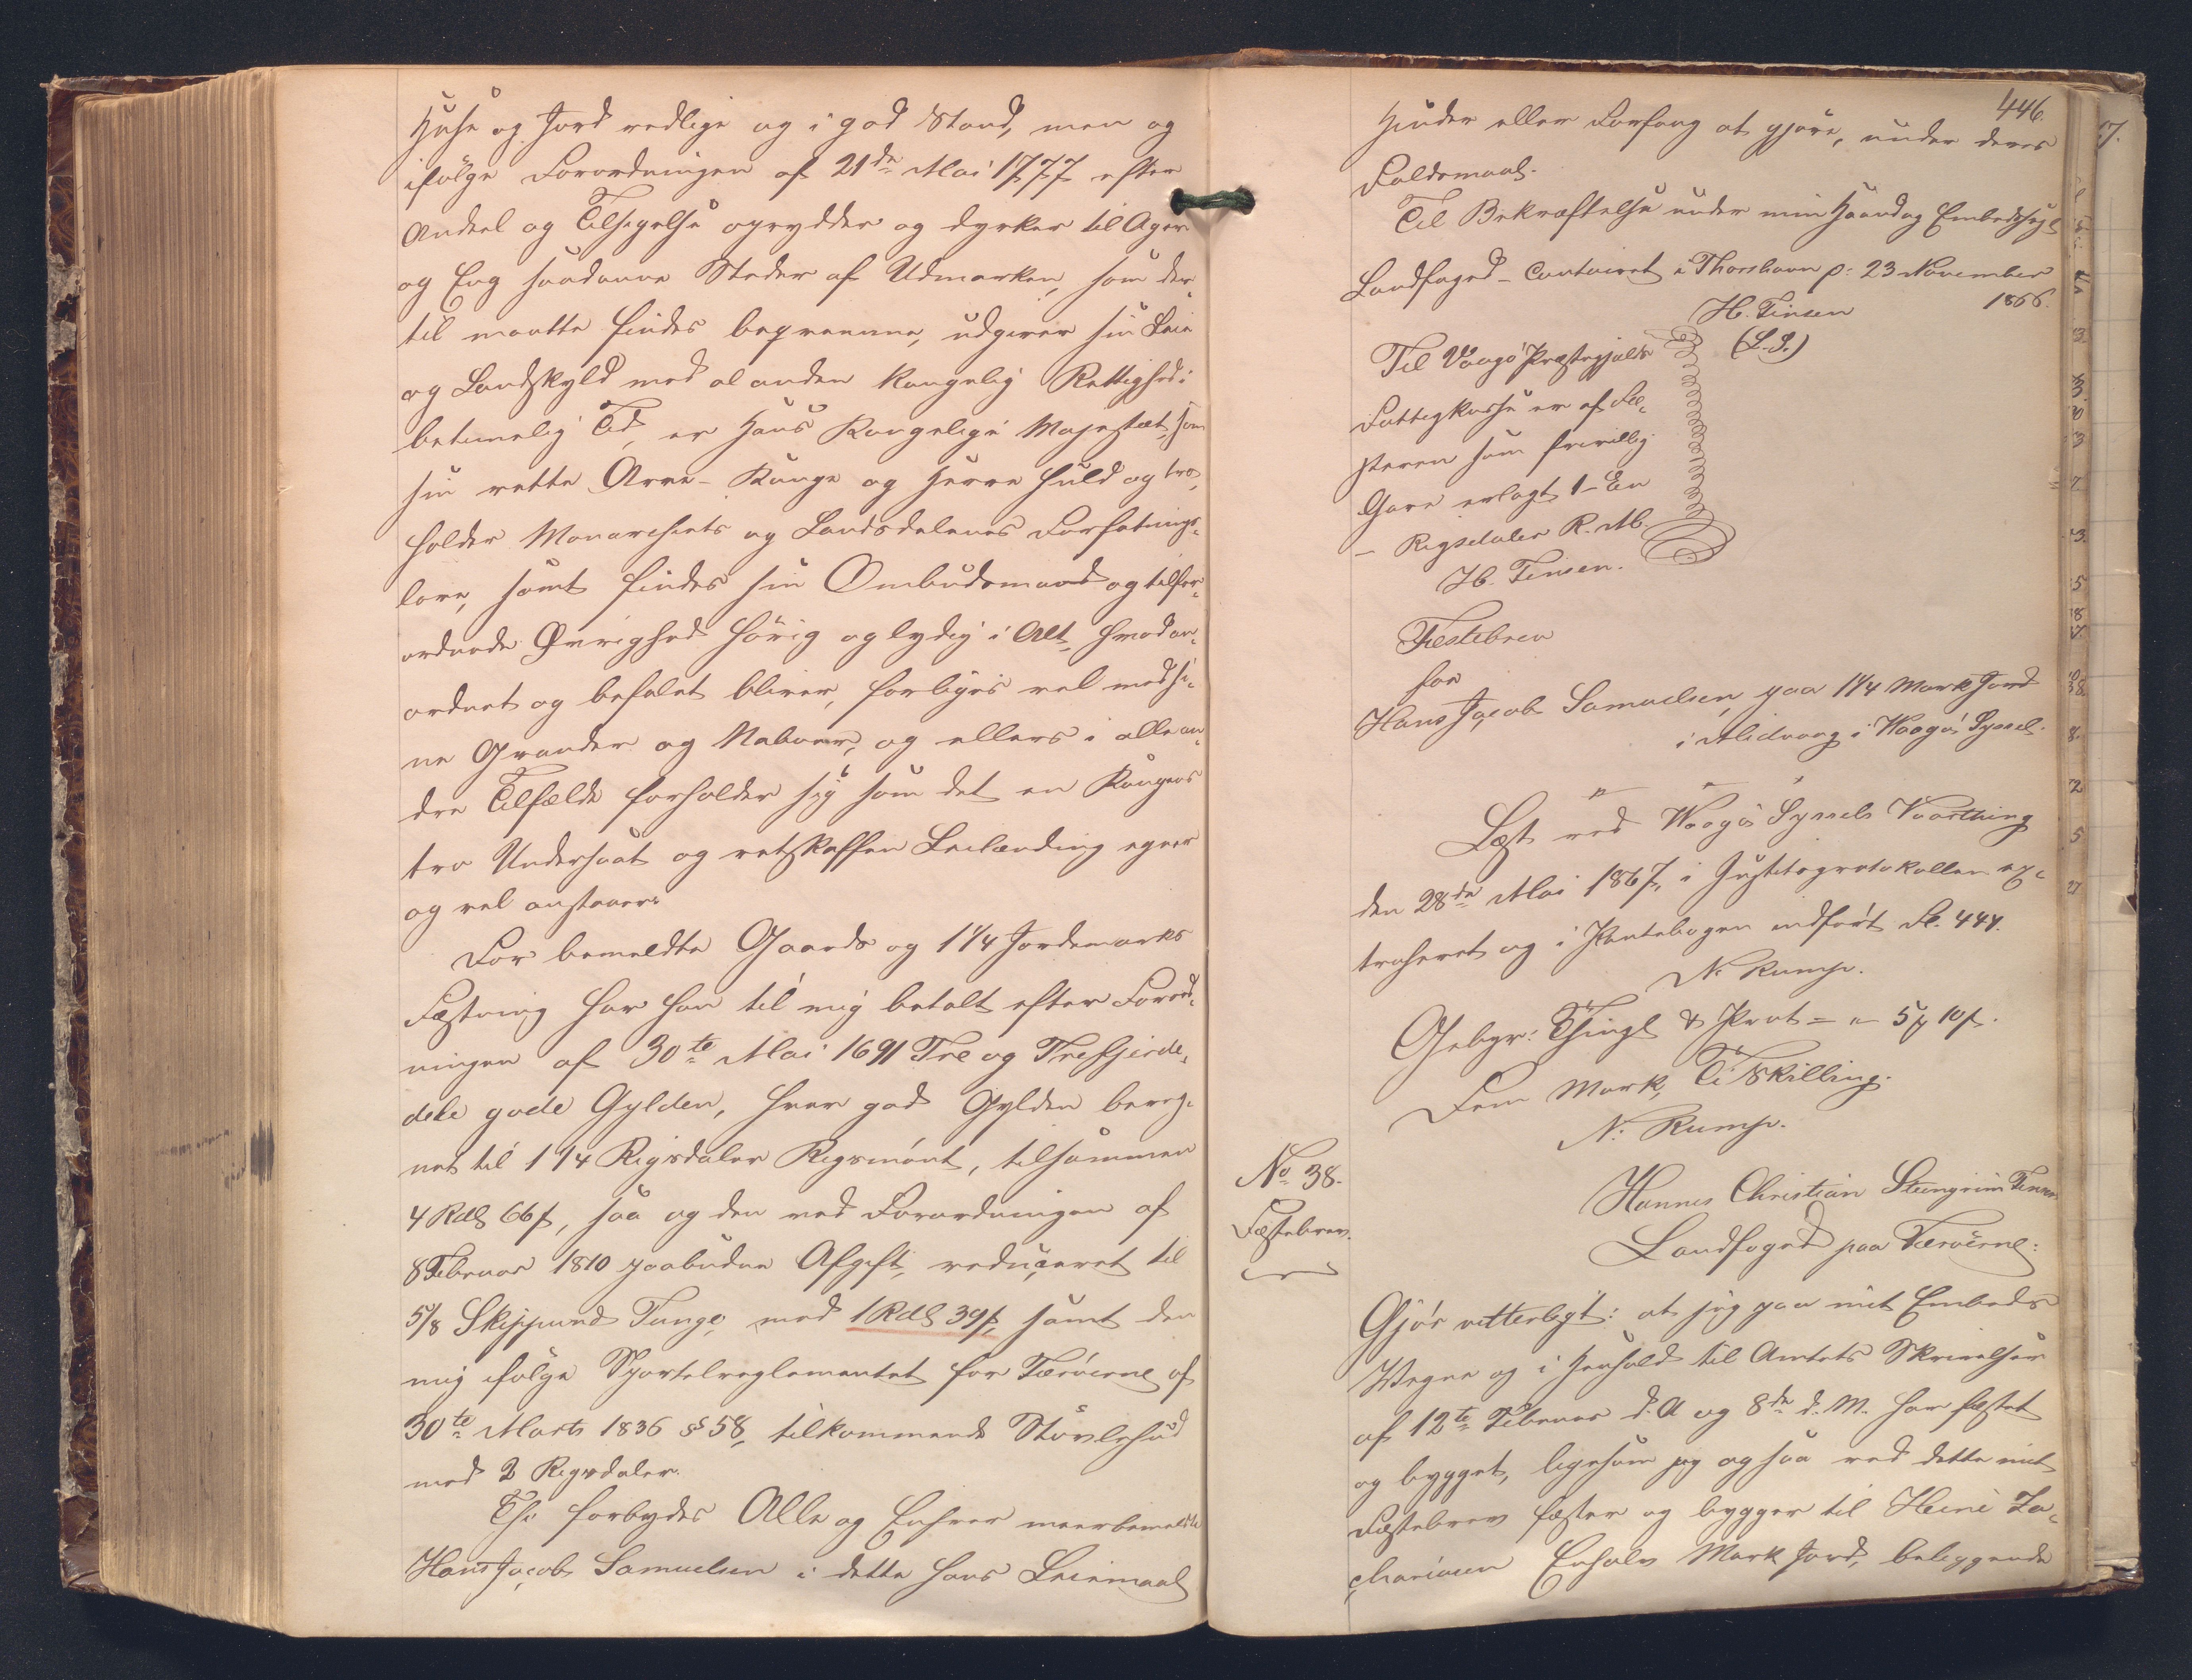 Huse og Jord redlige og i god Stand, men og
ifølge Forordningen af 21de Mai 1777 efter
Andeel og Tilsigelse oprydder og dyrker til Ager
og Eng saadanne Steder af Udmarken, som der
til maatte findes beqvemme, udgiver sin Leie
og Landskyld med al anden kongelig Rettighed i
betimelig Tid, er Hans Kongelige Majestæt, som
sin rette Arve-Konge og Herre huld og tro,
holder Monarchiets og Landsdelenes Forfatnings-
love, samt findes sin Ombudsmand og tilfor-
ordnede Øvrighed hørig og lydig i Alt, hvad an-
ordnet og befalet bliver, forliges vel med si-
ne Grander og Naboer, og ellers i alle an-
dre Tilfælde forholder sig som det en Kongens
tro Undersaat og retskaffen Leilænding egner
og vel anstaaer.
For bemeldte Gaards og 1 1/4 Jordemarks
Fæstning har han til mig betalt efter Forord-
ningen af 30te Mai 1691 Tre og Trefjerde-
dele gode Gylden, hver god Gylden bereg-
net til 1 1/4 Rigsdaler Rigsmønt, tilsammen
4 Rdl 66 ß, saa og den ved Forordningen af
8 Februar 1810 paabudne Afgift, reduceret til
5/8 Skippund Tunge, med 1 Rdl 39 ß, samt den
mig ifølge Sportelreglementet for Færøerne af
30te Marts 1836 § 58, tilkommende Støvlehud
med 2 Rigsdaler.
Thi forbydes Alle og Enhver meerbemeldte
Hans Jacob Samuelsen i dette hans Leiemaal
446.
Hinder eller Forfang at gjøre, under deres
Faldsmaal.
Til Bekræftelse under min Haand og Embedssegl
Landfoged-Contoiret i Thorshavn p: 23 November
1866.
H. Finsen
(L.S.)
Til Vaagø Præstegjælds
Fattigkasse er af Fæ-
steren som frivillig
Gave erlagt 1 - En
- Rigsdaler R. M.
H. Finsen.
Fæstebrev
for
Hans Jacob Samuelsen, paa 1 1/4 Mark Jord
i Midvaag i Waagø Syssel.
Læst ved Waagø Syssels Vaarthing
den 28de Mai 1867, i Justitsprotokollen ex-
traheret og i Pantebogen indført Fl. 444.
N. Rump.
Gebyr: Thingl & Prot = " - 5 ₻ 10 ß.
Fem Mark, Ti Skilling.
N: Rump.
No 38.
Fæstebrev.
Hannes Christian Steingrim Finsen
Landfoged paa Færøerne:
Gjør vitterligt: at jeg paa mit Embeds
Vegne og i Henhold til Amtets Skrivelser
af 12te Februar d. A og 8de d. M. har fæstet
og bygget, ligesom jeg ogsaa ved dette mit
Fæstebrev fæster og bygger til Heine Za-
chariasen Enhalv Mark Jord, beliggende